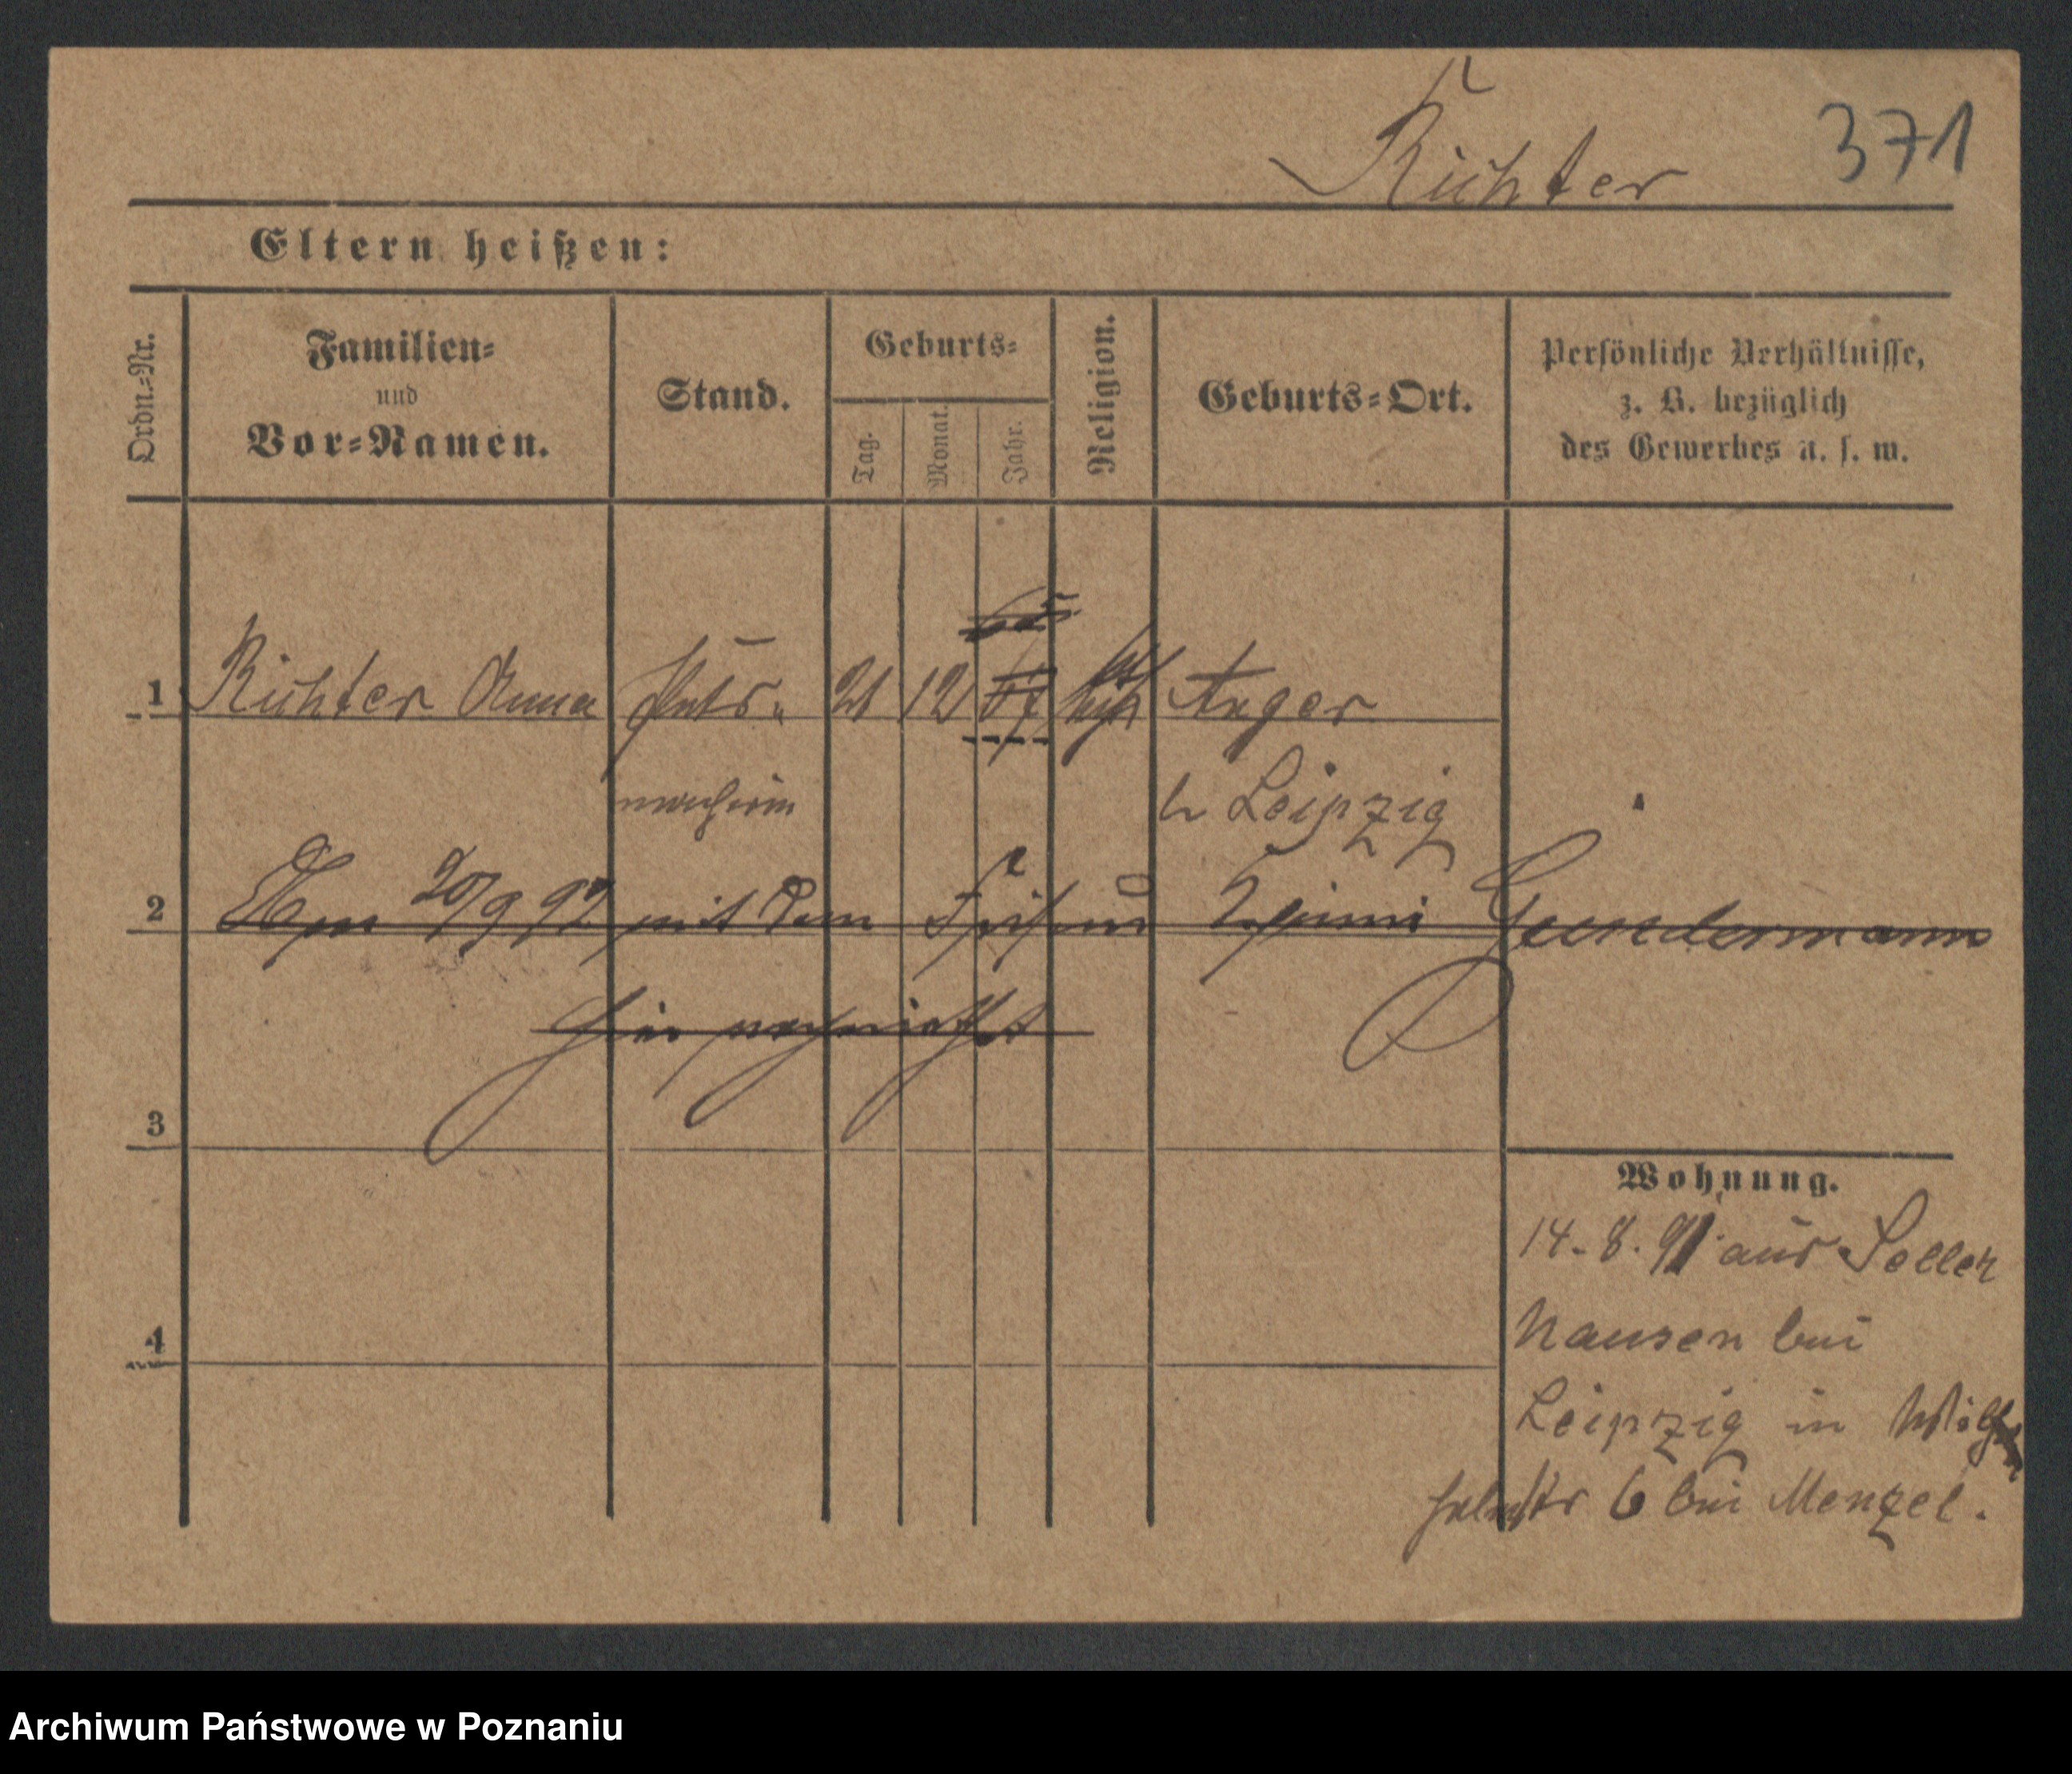 Richter 371
Eltern heißen:
Ordn.-Nr.
Familien-
und
Vor-Namen.
Stand.
Geburts-
Tag.
Monat.
Jahr.
Religion.
Geburts-Ort.
Persönliche Verhältnisse,
z. B. bezüglich
des Gewerbes u. s. w.
1 Richter Anna Putz- 21 12 67 Anger
macherin b Leipzig
2 Am 20/9 92 mit dem Friseur Gundermann
hier verheirathet
3
Wohnung.
14. 8. 91 aus Seller
hausen bei
4
Leipzig in Wilh
helmstr 6 bei Menzel.
Archiwum Państwowe w Poznaniu